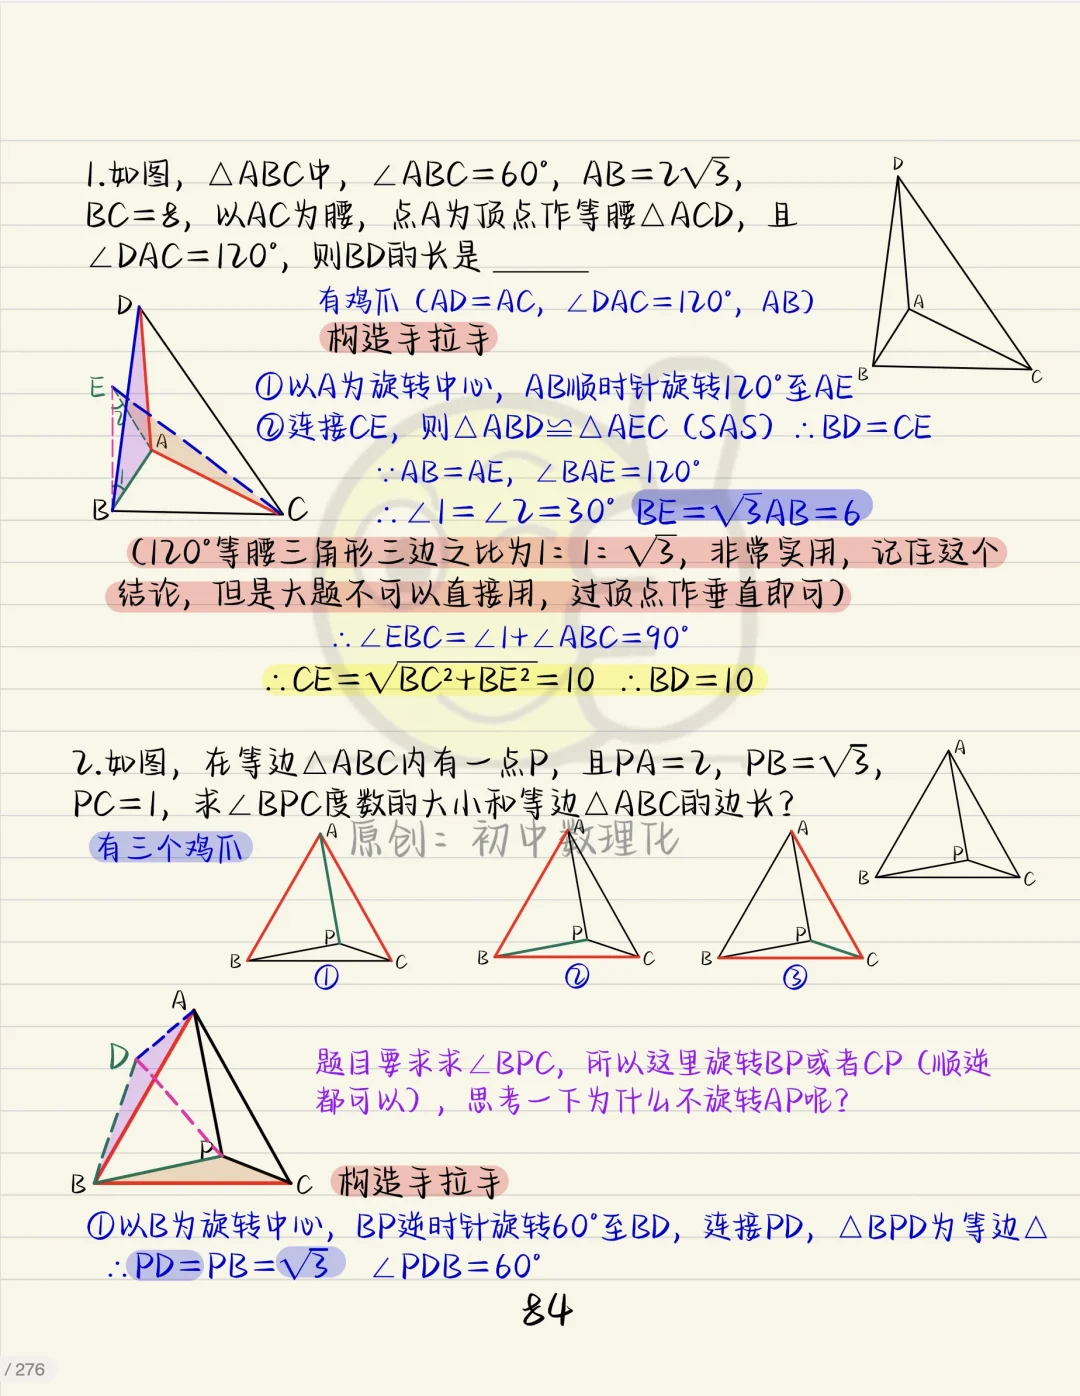 1.如图，△ABC中，∠ABC=60°，AB=2√3，
BC=8，以AC为腰，点A为顶点作等腰△ACD，且
∠DAC=120°，则BD的长是 ______
D
A
B
C
有鸡爪（AD=AC，∠DAC=120°，AB）
构造手拉手
D
E
2
A
1
B
C
①以A为旋转中心，AB顺时针旋转120°至AE
②连接CE，则△ABD≌△AEC（SAS）∴BD=CE
∵AB=AE，∠BAE=120°
∴∠1=∠2=30° BE=√3AB=6
（120°等腰三角形三边之比为1：1：√3，非常实用，记住这个
结论，但是大题不可以直接用，过顶点作垂直即可）
∴∠EBC=∠1+∠ABC=90°
∴CE=√BC²+BE²=10 ∴BD=10
2.如图，在等边△ABC内有一点P，且PA=2，PB=√3，
PC=1，求∠BPC度数的大小和等边△ABC的边长？
A
P
B
C
有三个鸡爪
原创：初中数理化
A
P
B
C
①
A
P
B
C
②
A
P
B
C
③
A
D
P
B
C
题目要求求∠BPC，所以这里旋转BP或者CP（顺逆
都可以），思考一下为什么不旋转AP呢？
构造手拉手
①以B为旋转中心，BP逆时针旋转60°至BD，连接PD，△BPD为等边△
∴PD=PB=√3 ∠PDB=60°
84
/ 276